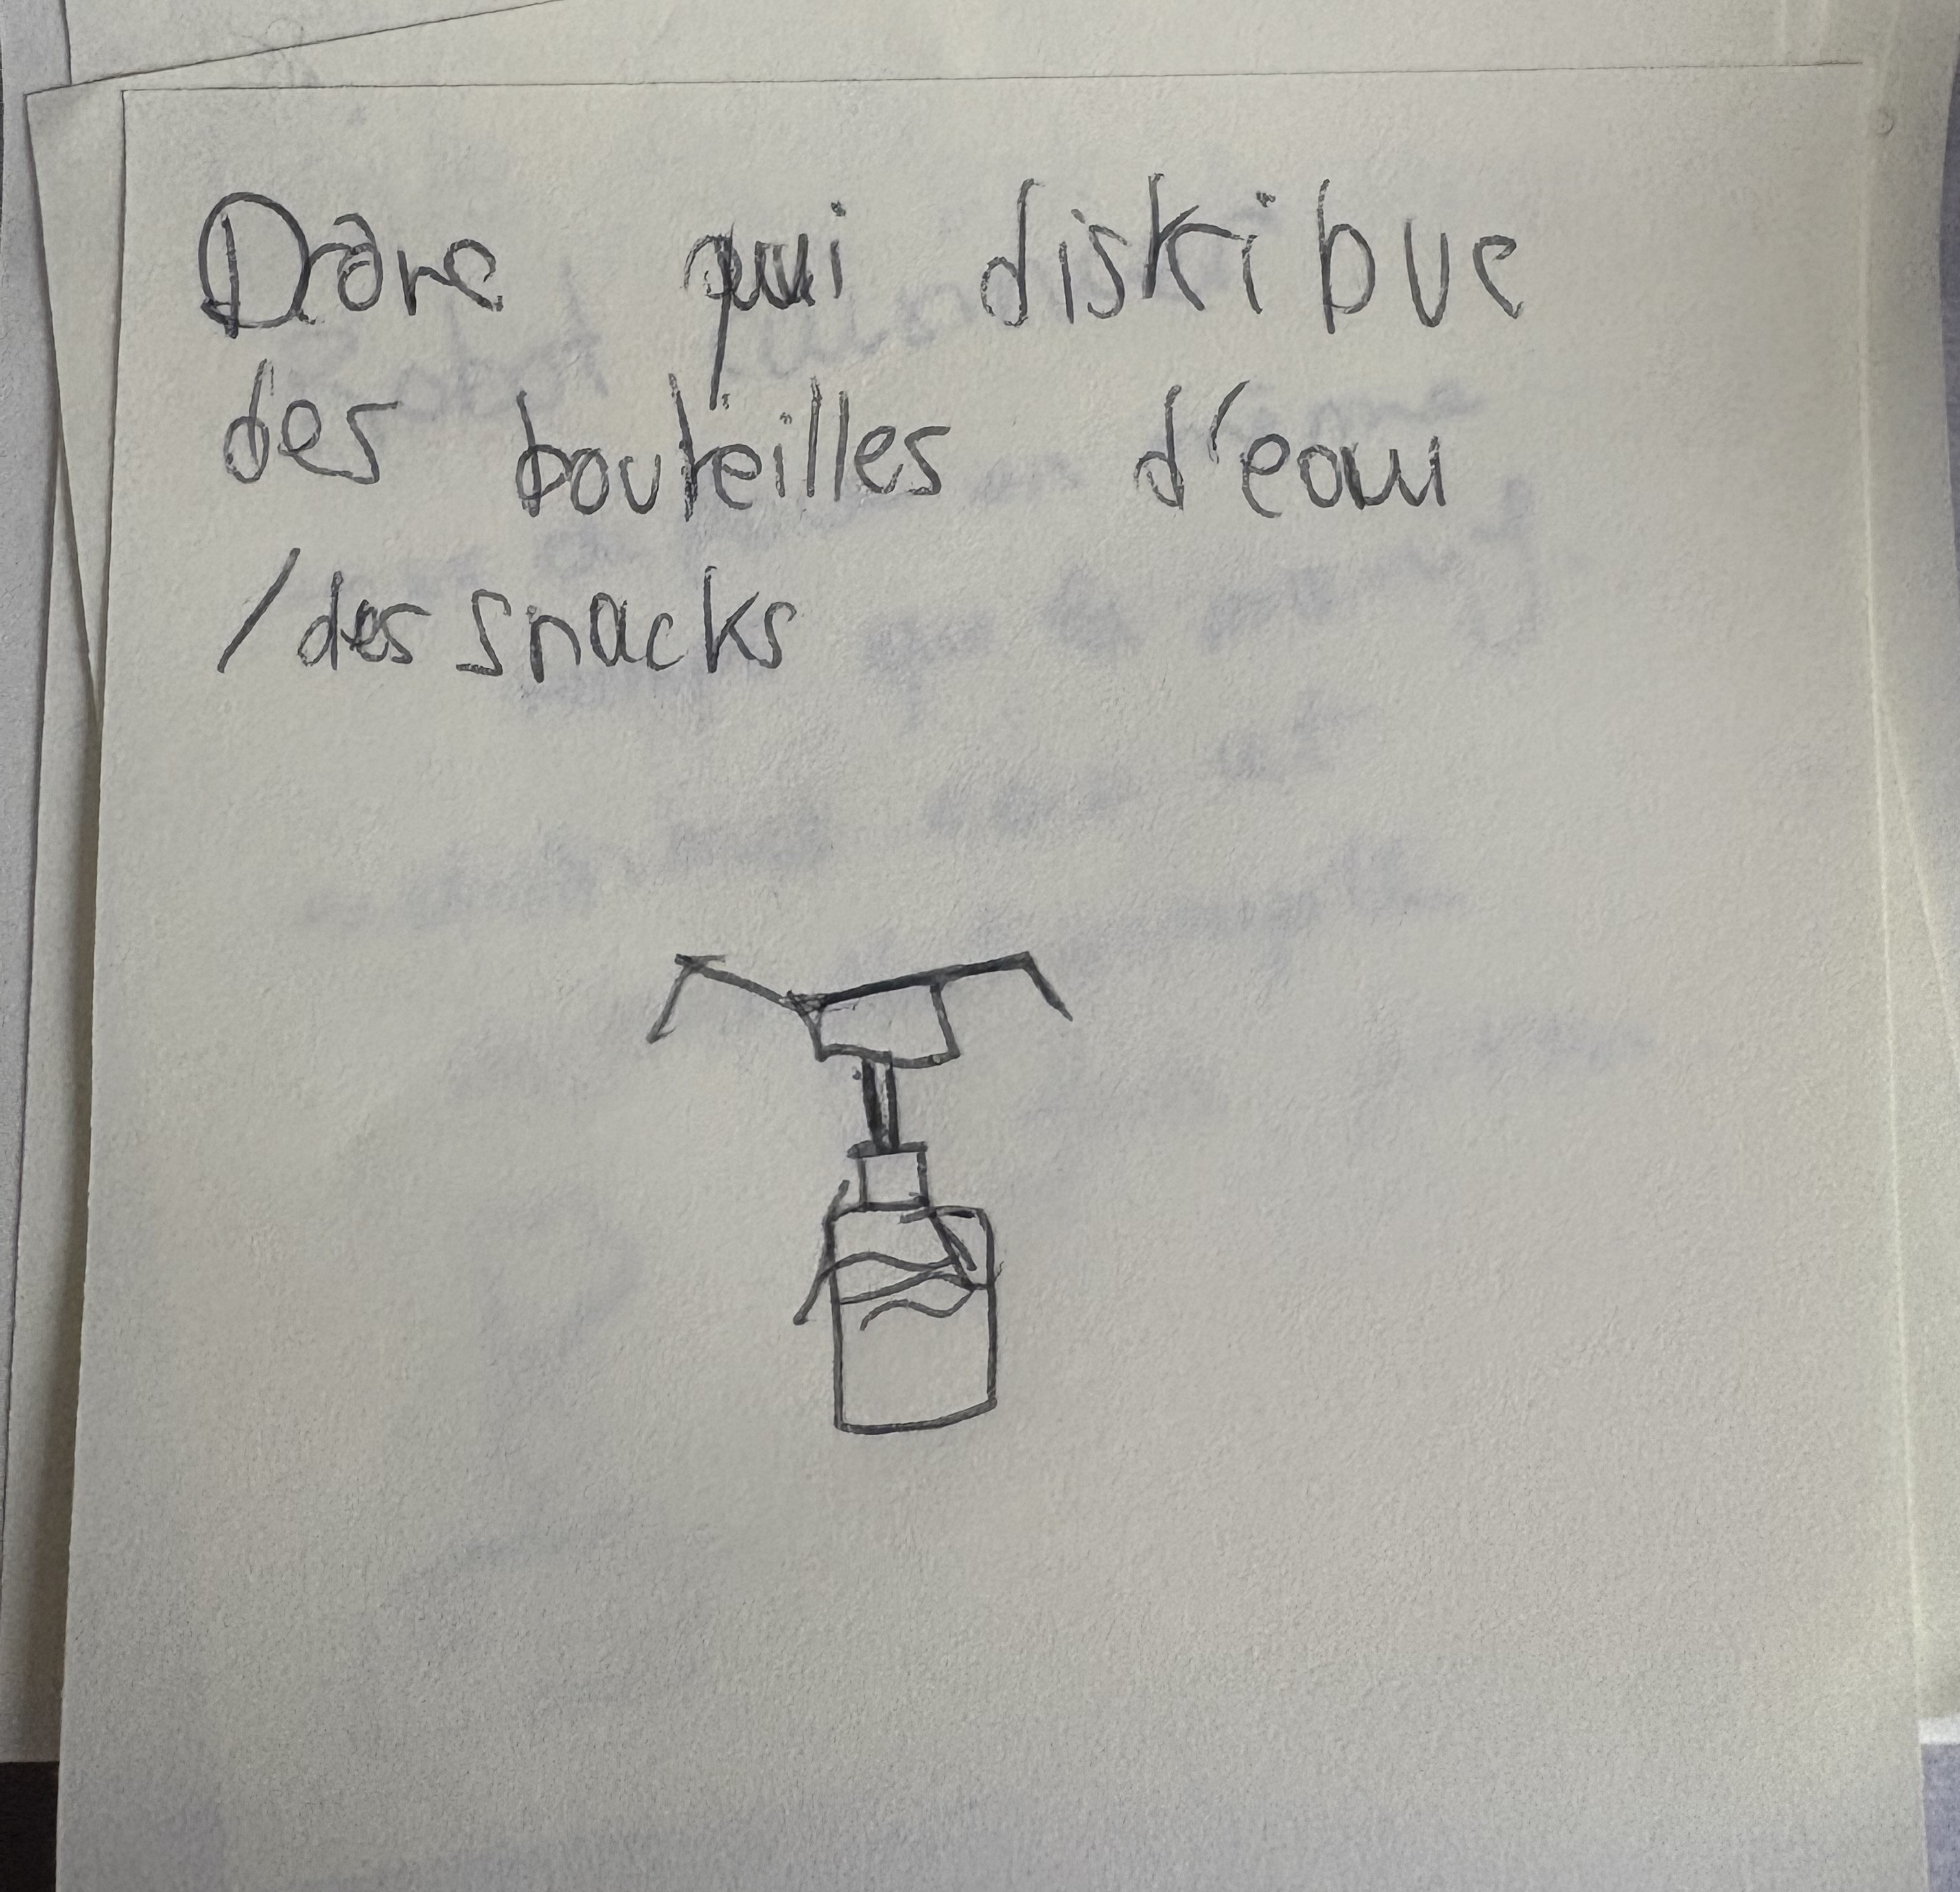 Drone qui distribue
des bouteilles d'eau
/des snacks